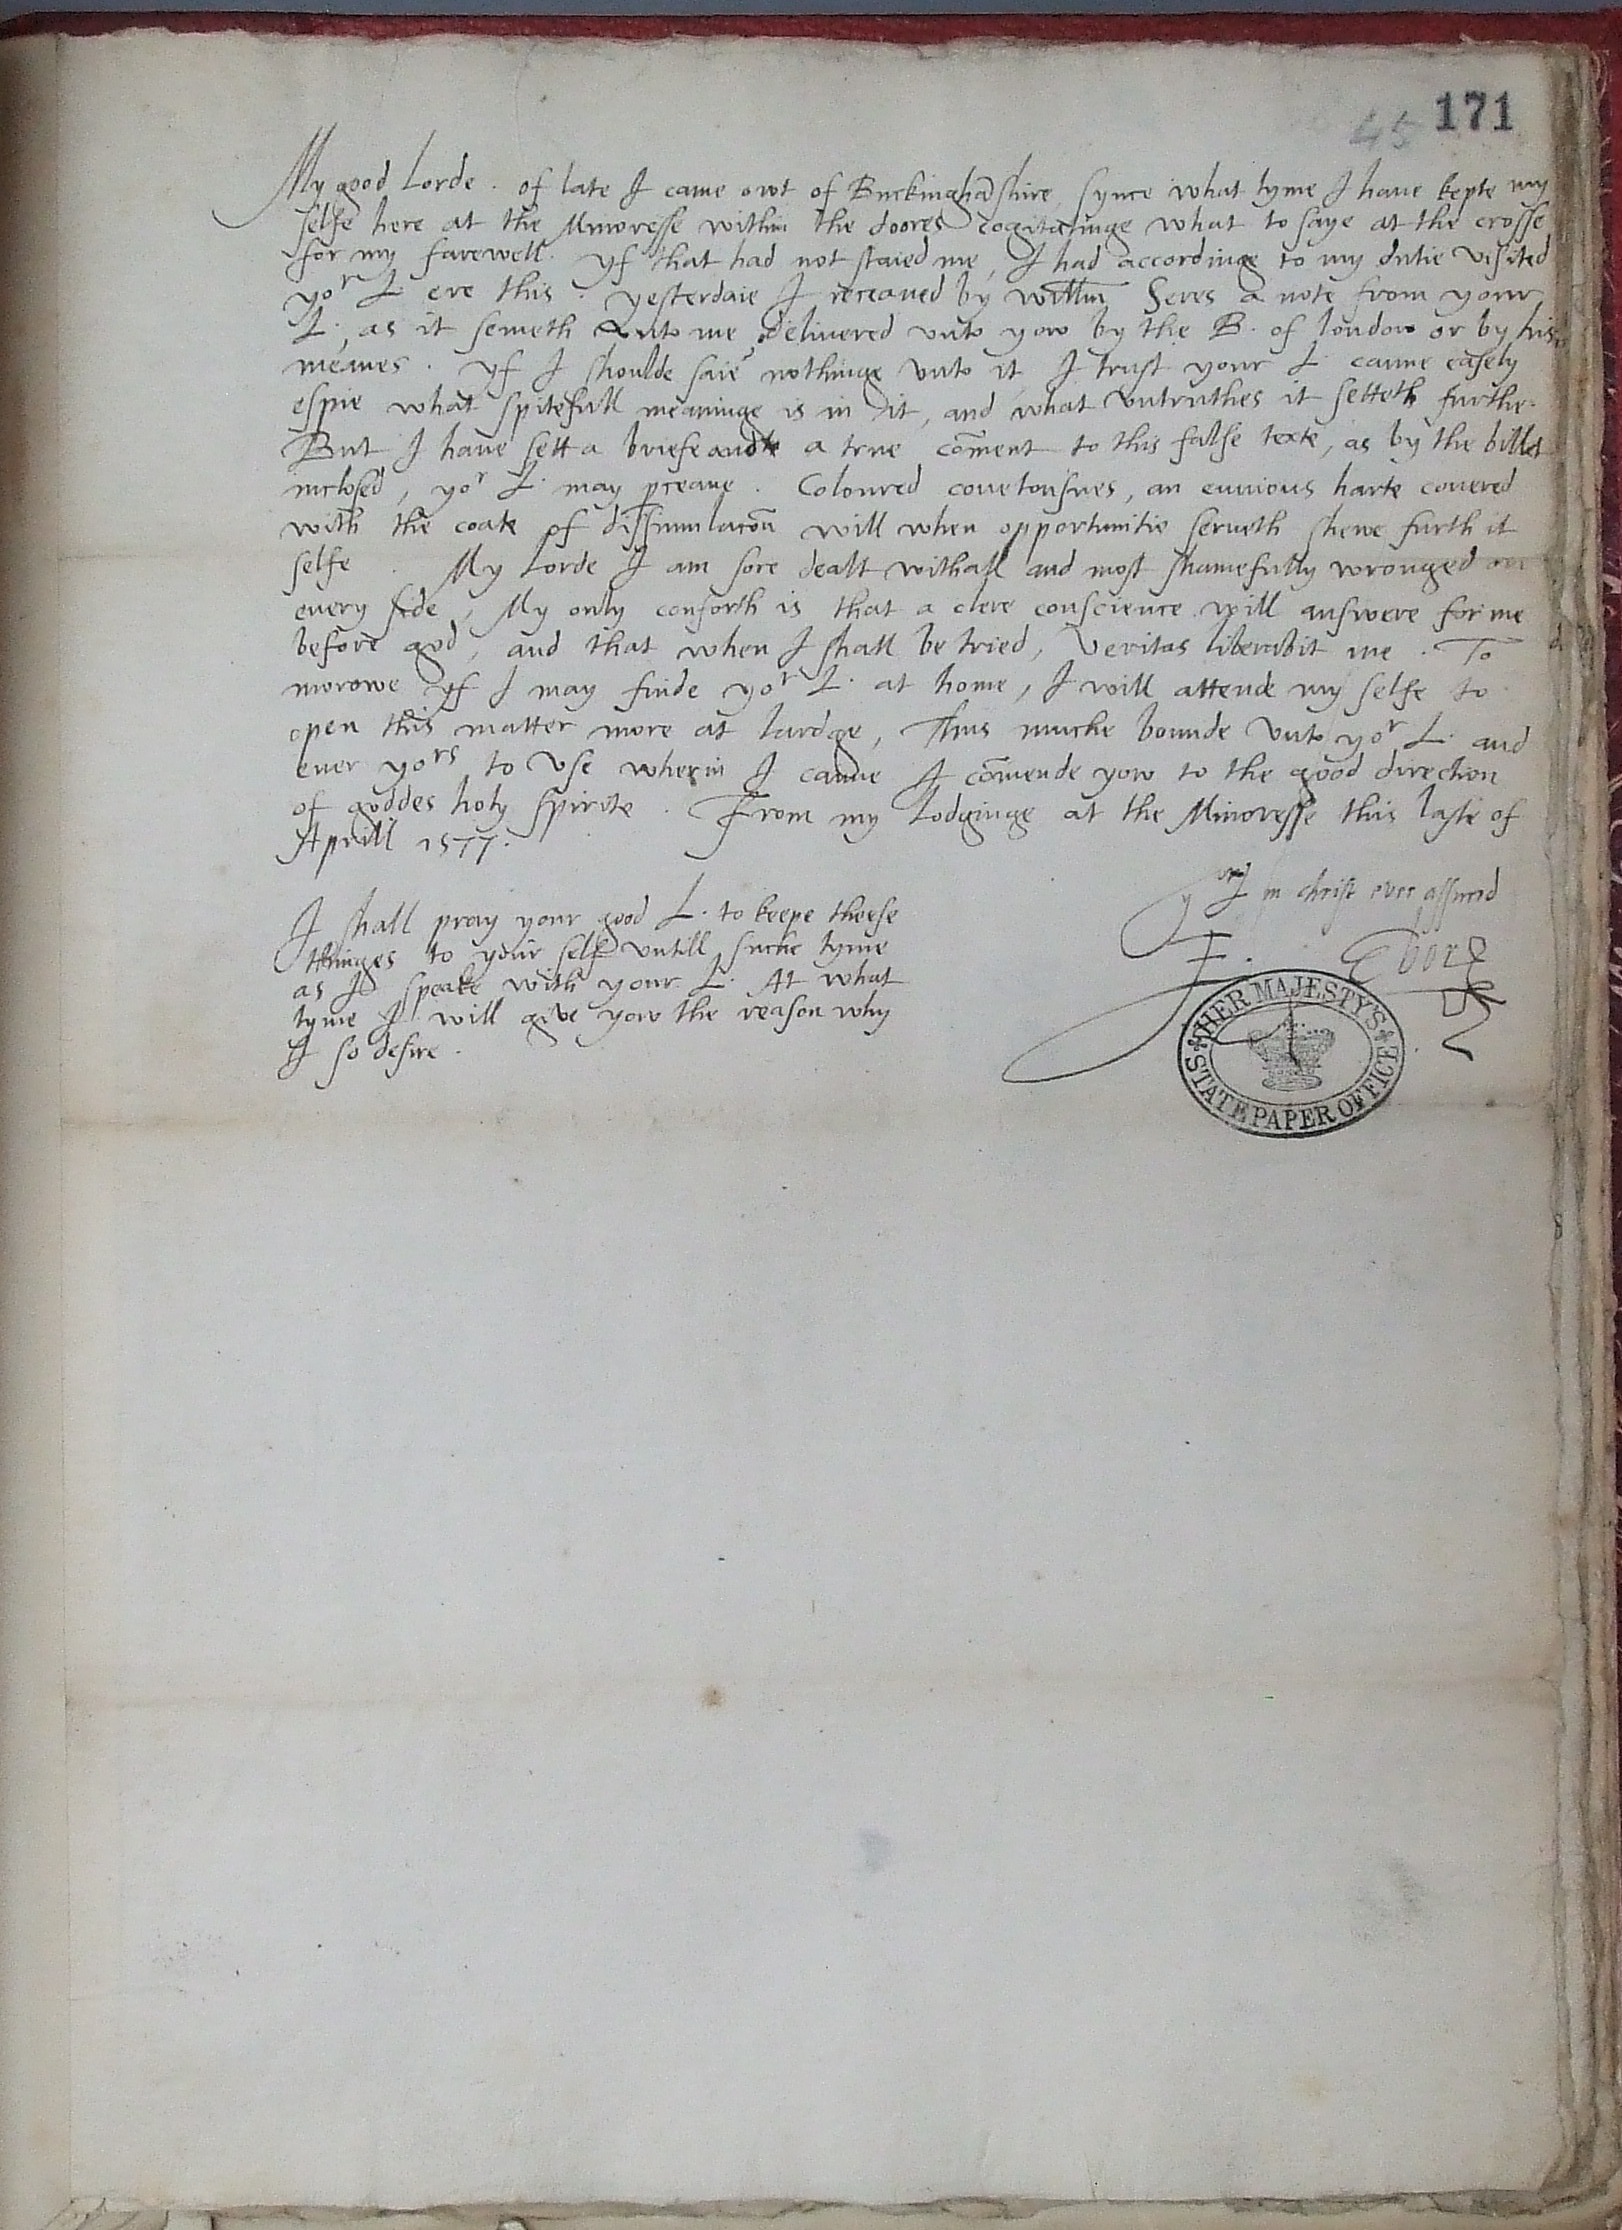 45 171
My good Lorde . of late I came owt of Buckinghãshire, synce what tyme I haue kepte my
selfe here at the Minoresse within the doores cogitatinge what to saye at the crosse
for my farewell. yf that had not staied me, I had accordinge to my dutie visited
yoʳ L. ere this . yesterdaie I receaued by Willm̅ Seres a note from your
L., as it semeth unto me delivered vnto yow by the B. of london or by his
meanes . yf I shoulde saie nothinge vnto it, I trust your L. canne easely
espie what spitefull meaninge is in it, and what vntruthes it setteth furthe.
But I haue sett a briefe and a true cōment to this false texte, as by the billet
inclosed, yoʳ L. may ꝑceaue . Coloured couetousnes, an enuious harte couered
with the coate of dissimulacōn will when opportunitie serueth shewe furth it
selfe . My Lorde I am sore dealt withall and most shamefully wronged on
euery side, My only conforth is that a clere conscience will answere for me
before god, and that when I shall be tried, Veritas liberabit me . To
morowe yf I may finde yoʳ L. at home, I will attende my selfe to
open this matter more at lardge, Thus muche bounde vnto yoʳ L. and
euer yoʳˢ to vse wherin I canne I cōmende yow to the good direction
of goddes holy spirite . From my Lodginge at the Minoresse this laste of
Aprill 1577.
L in christ ever assured
E. Ebor
I shall pray your good L. to keepe theese
thinges to your self vntill suche tyme
as I speake with your L. At what
tyme I will give yow the reason why
I so desire .
HER MAJESTY'S
STATE PAPER OFFICE